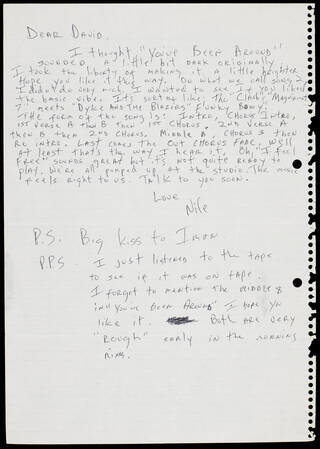 DEAR DAVID,
I thought, "YOU'VE BEEN AROUND"
SOUNDED A little bit DARK originally
I took the liberty of making it A little brighter
Hope you like it this way. On what we call song 2,
I didn't do very much, I wanted to see if you liked
the basic vibe. It's sort of like, "The Clash Magnificent
7" meets "Dyke AND THE BLAZERS" "Funky Bway."
The form of the song is: Intro, CHORUS Intro,
1st VERSE A then B then 1st CHORUS. 2nd VERSE A
then B then 2nd CHORUS. Middle 8, CHORUS 3 then
RE intro. LAST CHORUS, The Out CHORUS FADE. Well
at least that's the way I hear it. Oh, "I feel
Free" sounds great but it's not quite ready to
play. We're all pumped up at the studio. The music
feels right to us. Talk to you soon.
Love
Nile
P.S. Big kiss to Iman
P.P.S. I just listened to the tape
to see if it was on tape.
I forgot to mention the middle 8
in "YOU'VE BEEN AROUND" I hope you
like it. Both are very
"ROUGH" early in the morning
mixes.